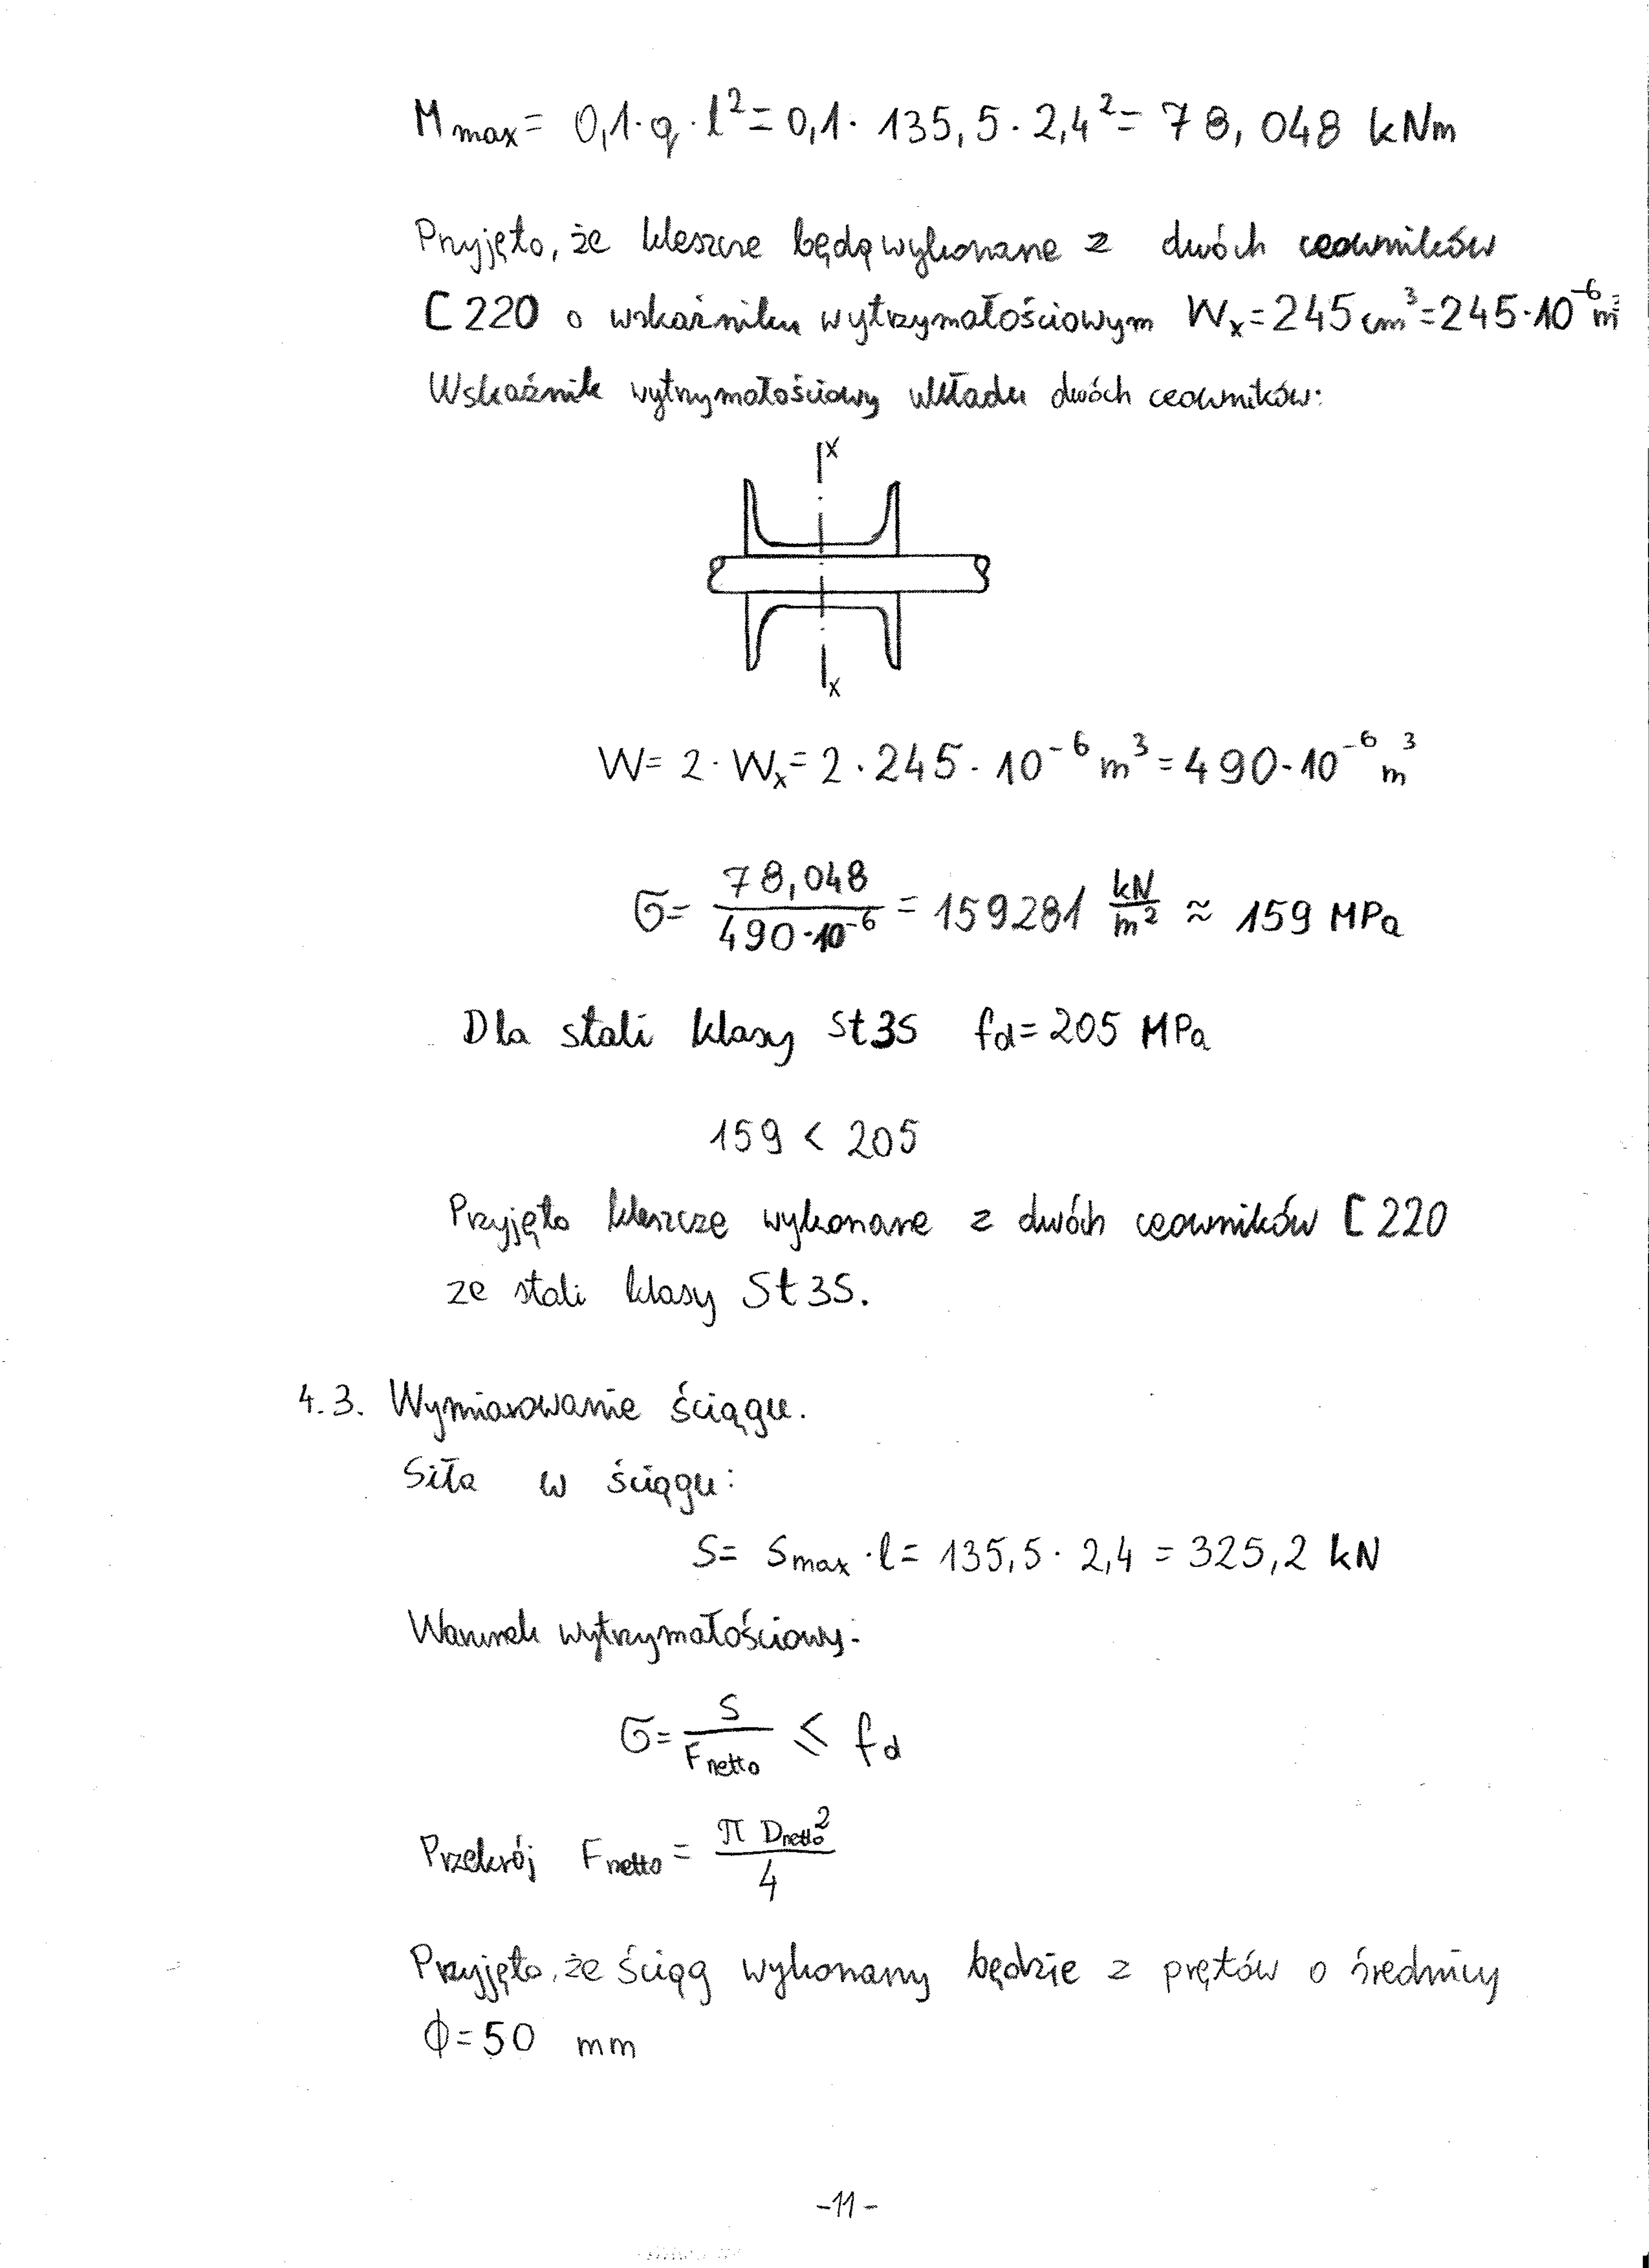 M max = 0,1·q·l² = 0,1·135,5·2,4² = 78,048 kNm
Przyjęto, że kleszcze będą wykonane z dwóch ceowników
[ 220 o wskaźniku wytrzymałościowym Wx = 245 cm³ = 245·10⁻⁶ m³
Wskaźnik wytrzymałościowy układu dwóch ceowników:
x
x
W = 2·Wx = 2·245·10⁻⁶ m³ = 490·10⁻⁶ m³
σ = 78,048 / 490·10⁻⁶ = 159281 kN/m² ≈ 159 MPa
Dla stali klasy St3S fd = 205 MPa
159 < 205
Przyjęto kleszcze wykonane z dwóch ceowników [ 220
ze stali klasy St3S.
4.3. Wymiarowanie ściągu.
Siła w ściągu:
S = Smax·l = 135,5·2,4 = 325,2 kN
Warunek wytrzymałościowy:
σ = S / F netto ≤ fd
Przekrój F netto = π D netto² / 4
Przyjęto, że ściąg wykonany będzie z prętów o średnicy
ϕ = 50 mm
-11-